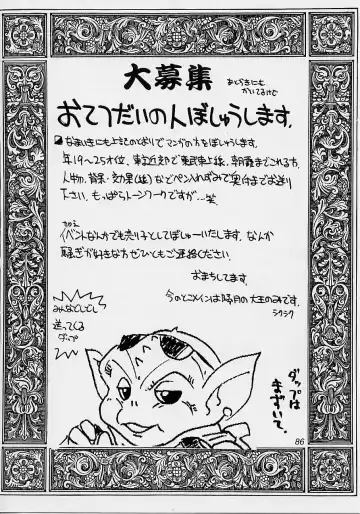 大募集
あとがきにも
かいてるけど
おてつだいの人ぼしゅうします。
なまいきにも上きのとおりでマンガの方をぼしゅうします。
年19〜25才位、東江近郊で東武東上線、朝霞までこれる方
人物、背景・効果(線)などペン入れずみで奥付までお送り
下さい。もっぱらトーンワークですが…笑
イベントなんかでも売り子としてぼしゅーいたします。なんか
騒ぎが好きな方ぜひともご連絡ください。
おまちしてます。
今のとこメインは隔月の大王のみです。
シクシク
みんなどしどし
送ってくる
ダップ
ダップは
まずいて。
86